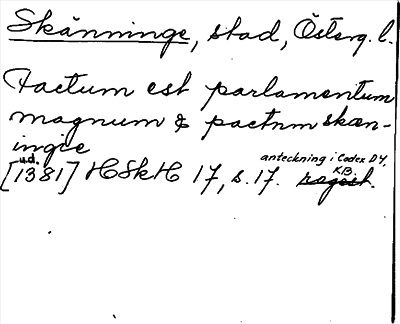 Skänninge, stad, Österg. l.
Factum est parlamentum
magnum & pactum skæn-
ingie
u.d. anteckning i Codex D4,
[1381] HSkH 17, s. 17. regest. KB.